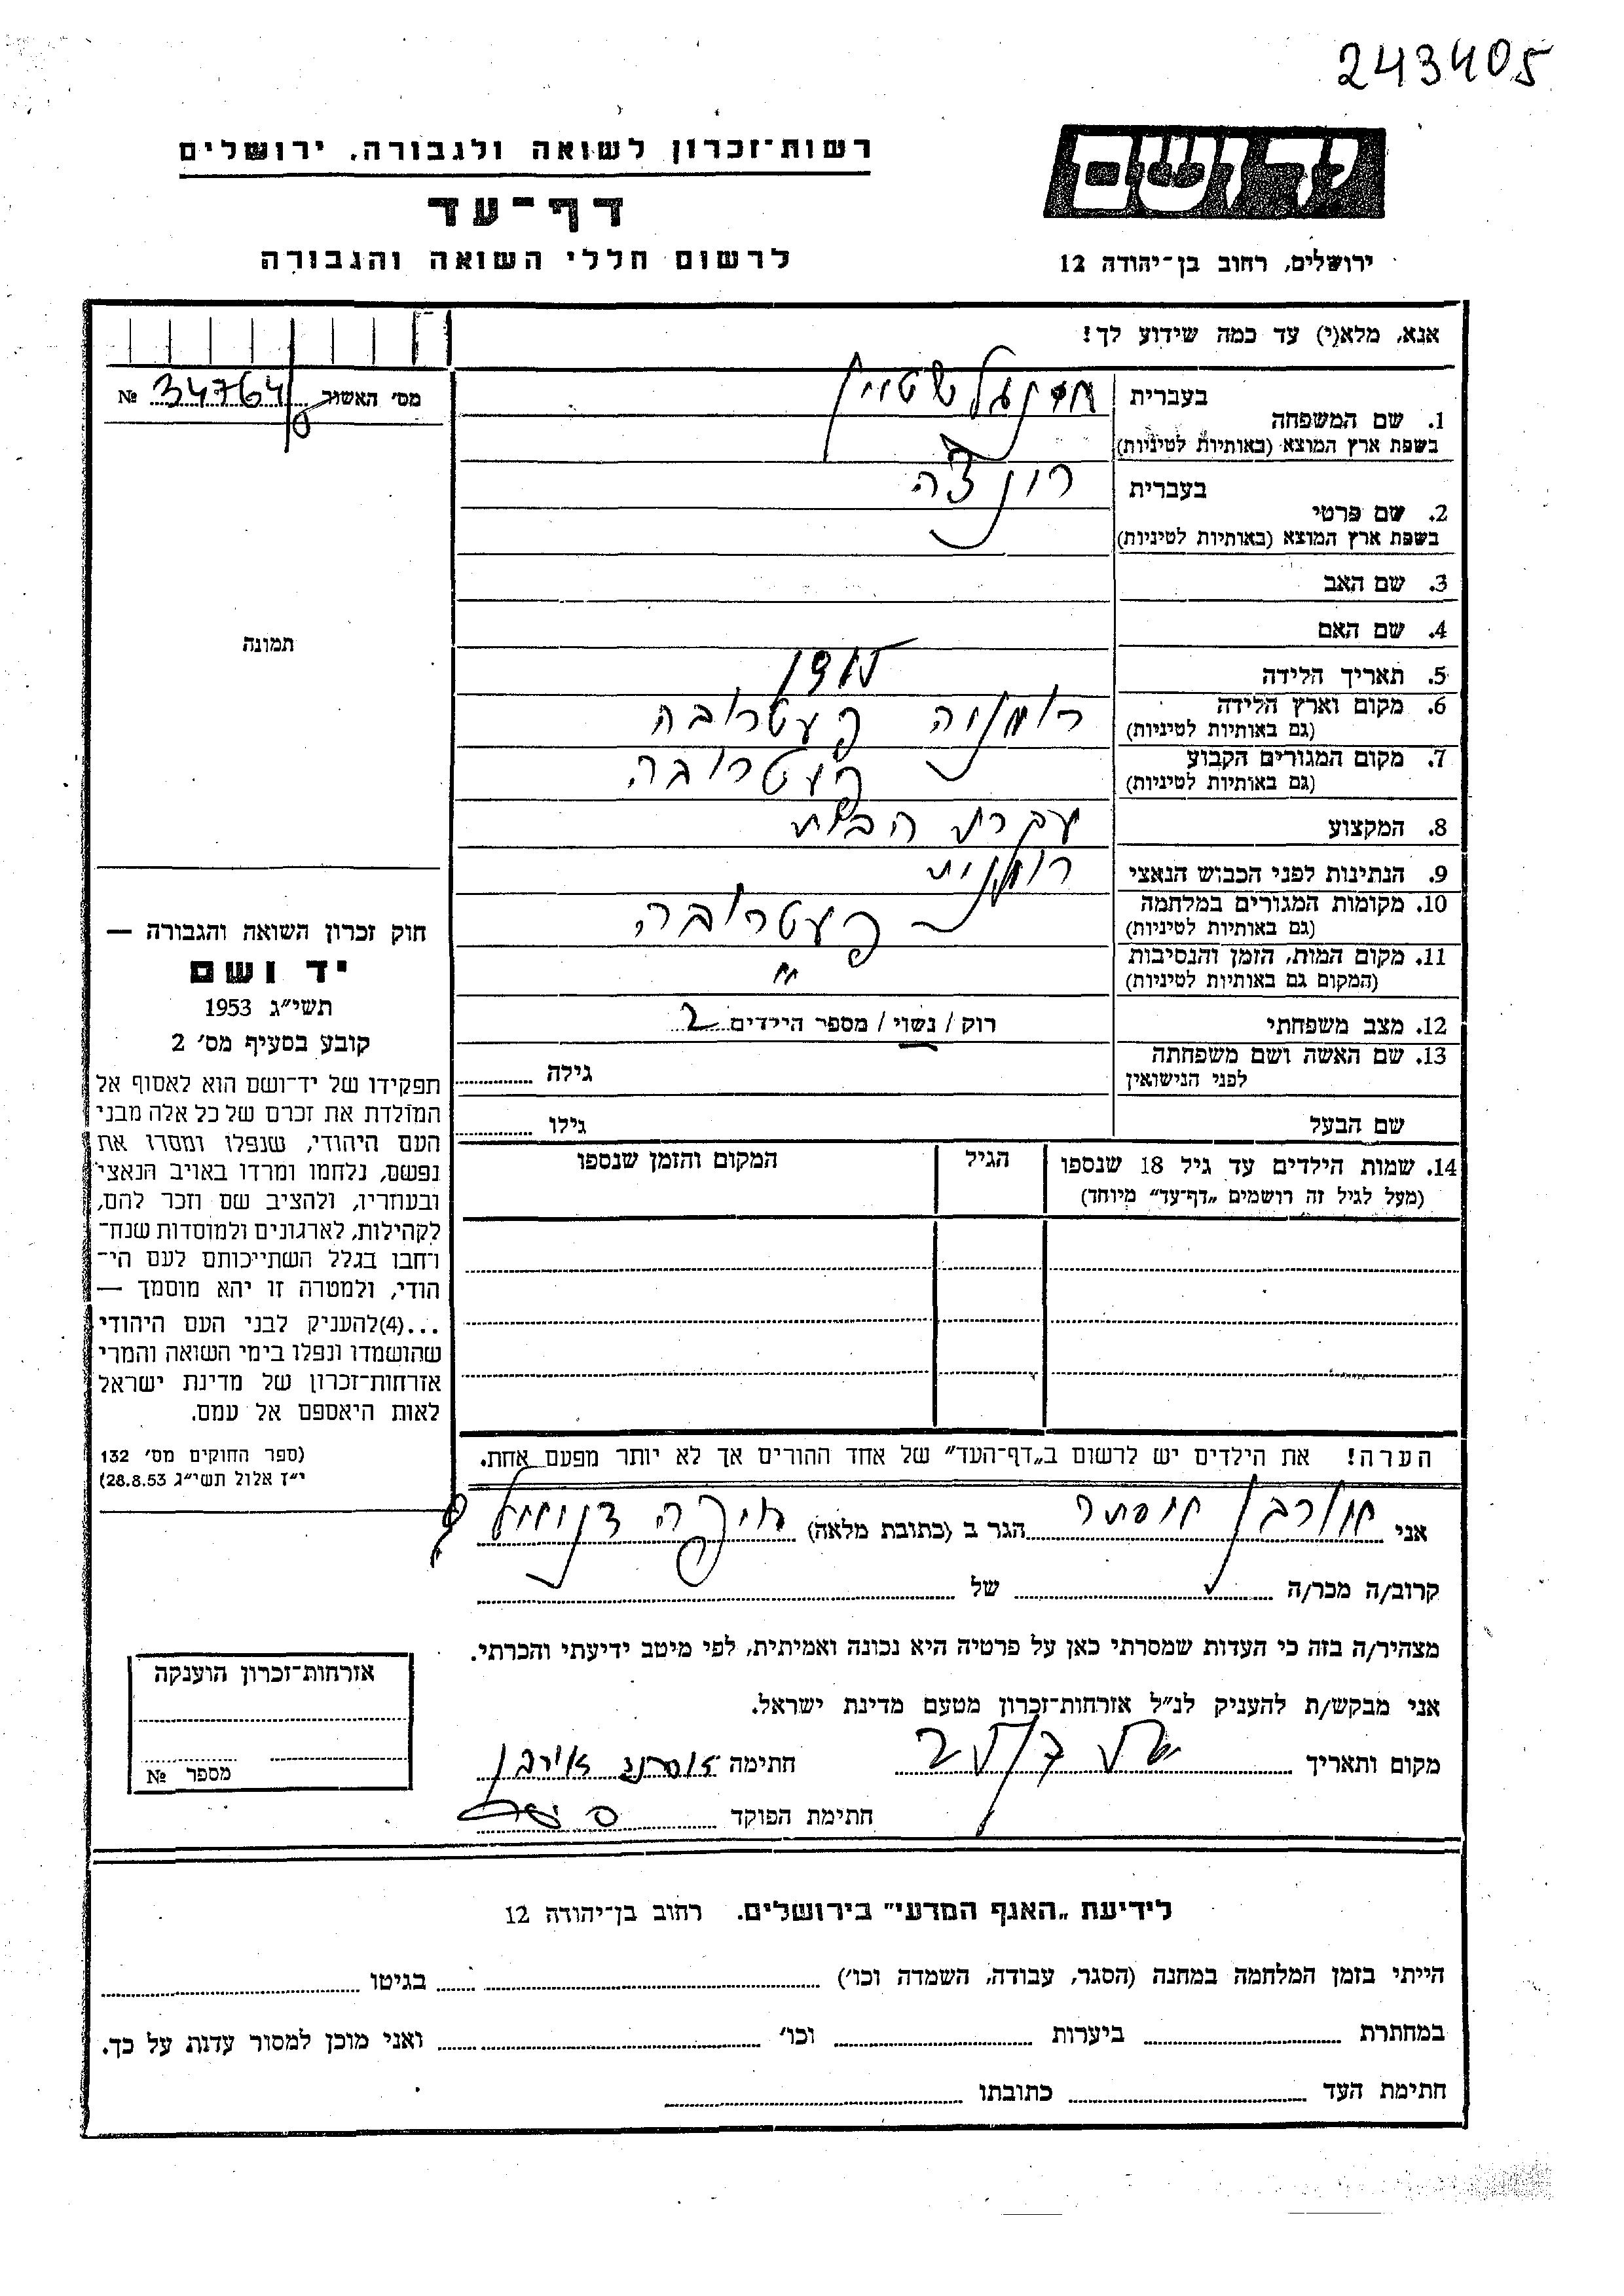 243405
ידושם
ירושלים, רחוב בן־יהודה 12
רשות־זכרון לשואה ולגבורה, ירושלים
דף־עד
לרשום חללי השואה והגבורה
אנא, מלא(י) עד כמה שידוע לך!
מס׳ האשור 34764 №
תמונה
1. שם המשפחה
בעברית
בשפת ארץ המוצא (באותיות לטיניות)
2. שם פרטי
בעברית
בשפת ארץ המוצא (באותיות לטיניות)
3. שם האב
4. שם האם
5. תאריך הלידה
6. מקום וארץ הלידה רומניה פעטרובה
(גם באותיות לטיניות)
7. מקום המגורים הקבוע פעטרובה
(גם באותיות לטיניות)
8. המקצוע עקרת הבית
9. הנתינות לפני הכבוש הנאצי רומנית
10. מקומות המגורים במלחמה פעטרובה
(גם באותיות לטיניות)
11. מקום המות, הזמן והנסיבות
(המקום גם באותיות לטיניות)
12. מצב משפחתי רוק / נשוי / מספר הילדים 2
13. שם האשה ושם משפחתה
לפני הנישואין
גילה
שם הבעל גילו
14. שמות הילדים עד גיל 18 שנספו
(מעל לגיל זה רושמים „דף־עד״ מיוחד)
הגיל
המקום והזמן שנספו
הערה! את הילדים יש לרשום ב„דף־העד״ של אחד ההורים אך לא יותר מפעם אחת.
חוק זכרון השואה והגבורה —
יד ושם
תשי״ג 1953
קובע בסעיף מס׳ 2
תפקידו של יד־ושם הוא לאסוף אל
המולדת את זכרם של כל אלה מבני
העם היהודי, שנפלו ומסרו את
נפשם, נלחמו ומרדו באויב הנאצי
ובעוזריו, ולהציב שם וזכר להם,
לקהילות, לארגונים ולמוסדות שנח־
רחבו בגלל השתייכותם לעם הי־
הודי, ולמטרה זו יהא מוסמך —
...(4)להעניק לבני העם היהודי
שהושמדו ונפלו בימי השואה והמרי
אזרחות־זכרון של מדינת ישראל
לאות היאספם אל עמם.
(ספר החוקים מס׳ 132
י״ז אלול תשי״ג 28.8.53)
אני אורבן אסתר הגר ב (כתובת מלאה) חיפה
קרוב/ה מכר/ה של
מצהיר/ה בזה כי העדות שמסרתי כאן על פרטיה היא נכונה ואמיתית, לפי מיטב ידיעתי והכרתי.
אני מבקש/ת להעניק לנ״ל אזרחות־זכרון מטעם מדינת ישראל.
מקום ותאריך חתימה
חתימת הפוקד
אזרחות־זכרון הוענקה
מספר №
לידיעת „האגף המדעי״ בירושלים. רחוב בן־יהודה 12
הייתי בזמן המלחמה במחנה (הסגר, עבודה, השמדה וכו׳) בגיטו
במחתרת ביערות וכו׳ ואני מוכן למסור עדות על כך.
חתימת העד כתובתו